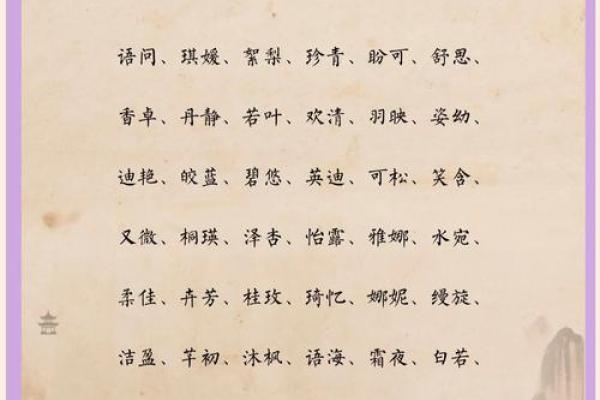 语问、琪媛、絮梨、珍青、盼可、舒思、
香卓、丹静、若叶、欢清、羽映、姿幼、
迪艳、皎蓝、碧悠、英迪、可松、笑含、
又微、桐瑛、泽杏、怡露、雅娜、水宛、
柔佳、卉芳、桂玫、琦忆、娜妮、缦旋、
洁盈、芊初、沐枫、语海、霜夜、白若、